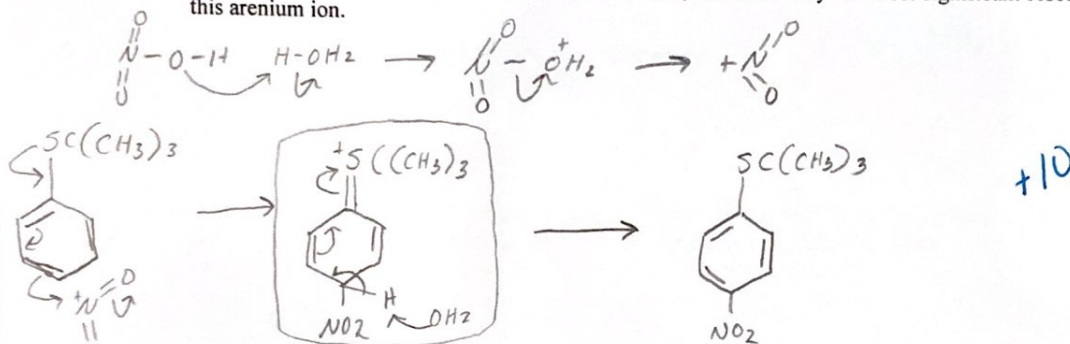 this arenium ion.
O
N-O-H H-OH2 → N-OH2 → +N=O
O O O
SC(CH3)3 +S((CH3)3 SC(CH3)3 +10
+N=O H
NO2 OH2 NO2